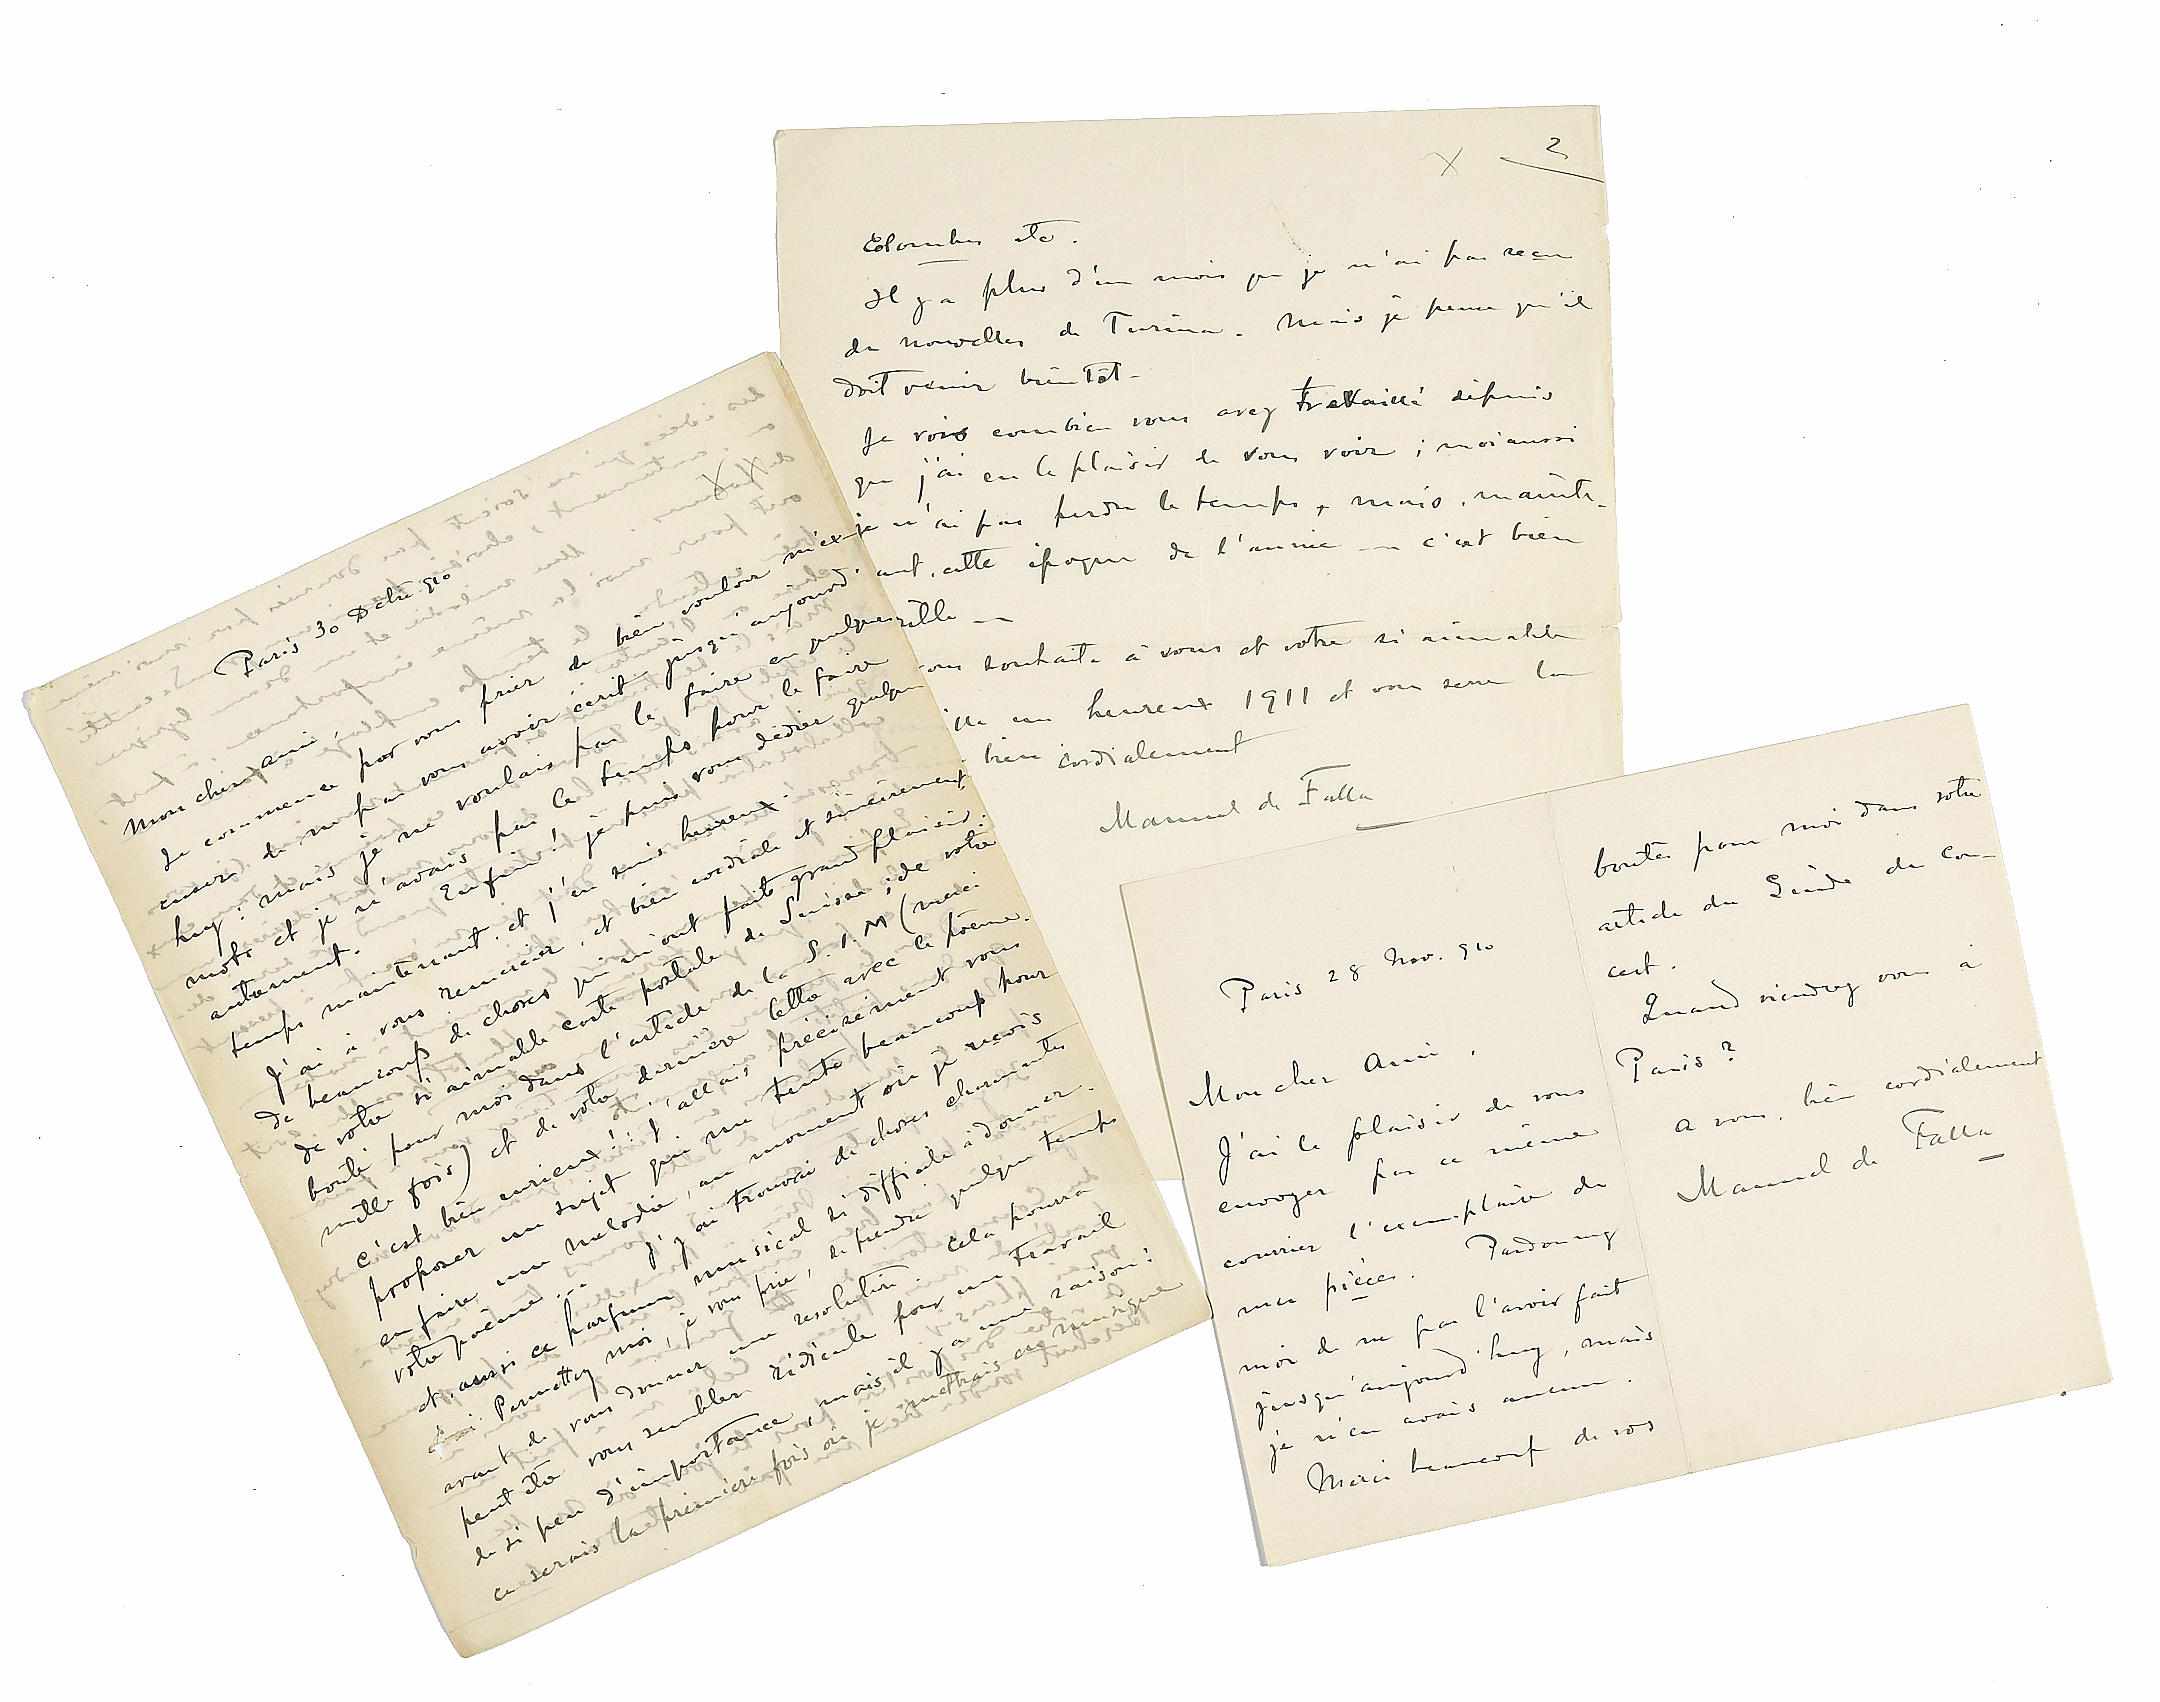 Paris 30 Dcbre 910
Mon cher ami,
Je commence par vous prier de bien vouloir m'ex-
cuser de ne pas vous avoir écrit jusqu'aujourd'
huy: mais je ne voulais pas le faire en quelques
mots et je n'avais pas le temps pour le faire
autrement. Enfin! je puis vous dédier quelque
temps maintenant, et j'en suis heureux.
J'ai à vous remercier, et bien cordiale et sincèrement,
de beaucoup de choses qui m'ont fait grand plaisir:
de votre si aimable carte postale de Suisse; de votre
bonté pour moi dans l'article de la S.I.M (merci
mille fois) et de votre dernière lettre avec le poème.
C'est bien curieux!: j'allais précisément vous
proposer un sujet qui me tente beaucoup pour
en faire une melodie, au moment où je reçois
votre poème... J'y ai trouvai de choses charmantes
et, aussi ce parfum musical si difficile à donner.
Permettez moi, je vous prie, de prendre quelque temps
avant de vous donner une resolution. Cela pourra
peut être vous sembler ridicule pour un travail
de si peu d'importance, mais il y a une raison:
ce serais la première fois où je mettrais en musique
X 2
Colombes etc.
Il y a plus d'un mois que je n'ai pas reçu
de nouvelles de Turina. Mais je pense qu'il
doit venir bientôt-
Je vois combien vous avez travaillé depuis
que j'ai eu le plaisir de vous voir; moi aussi
je n'ai pas perdu le temps, mais, mainte-
ant, cette époque de l'année — c'est bien
ille —
ous souhaite à vous et votre si aimable
ille un heureux 1911 et vous serre la
bien cordialement
Manuel de Falla
Paris 28 Nov. 910
Mon cher Ami,
J'ai le plaisir de vous
envoyer par ce même
courrier l'exemplaire de
mes pièces. Pardonnez
moi de ne pas l'avoir fait
jusqu'aujourd'huy, mais
je n'en avais aucun.
Merci beaucoup de vos
bontés pour moi dans votre
article du Guide du Con-
cert.
Quand viendrez vous à
Paris?
A vous, bien cordialement
Manuel de Falla